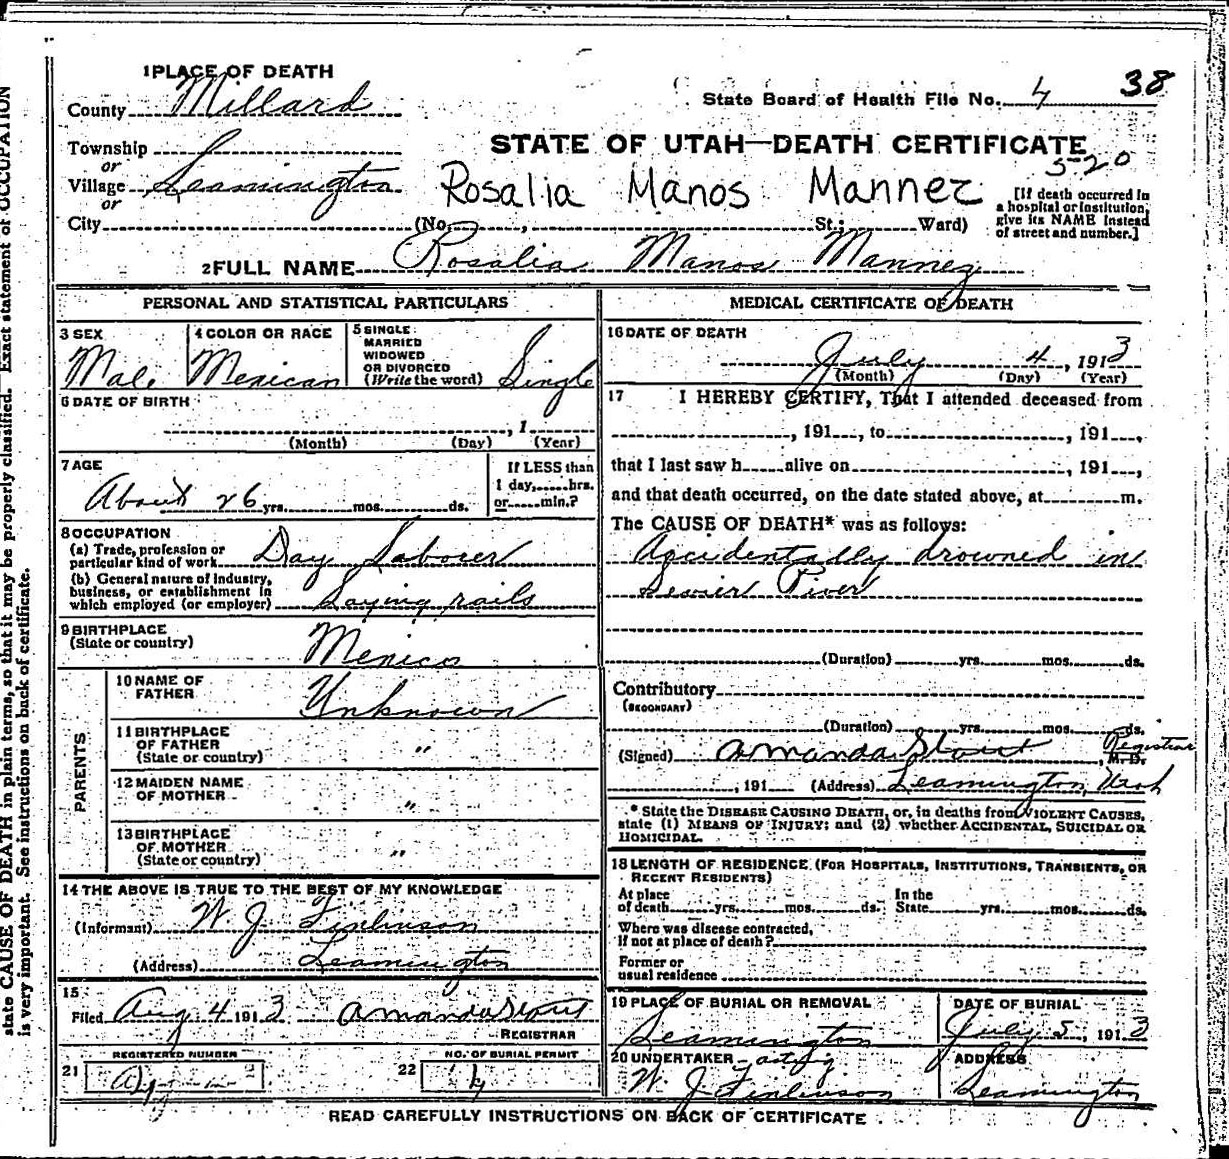 1 PLACE OF DEATH
County Millard
State Board of Health File No. 4 38
Township
or
STATE OF UTAH—DEATH CERTIFICATE
520
Village Leamington
or
Rosalia Manos Mannez
[If death occurred in a hospital or institution, give its NAME instead of street and number.]
City (No. , St.; Ward)
2 FULL NAME Rosalia Manos Mannez
PERSONAL AND STATISTICAL PARTICULARS
3 SEX
Male
4 COLOR OR RACE
Mexican
5 SINGLE
MARRIED
WIDOWED
OR DIVORCED
(Write the word) Single
6 DATE OF BIRTH
, 1
(Month) (Day) (Year)
7 AGE
About 26 yrs. mos. ds.
If LESS than
1 day, hrs.
or min.?
8 OCCUPATION
(a) Trade, profession or
particular kind of work Day Laborer
(b) General nature of Industry,
business, or establishment in
which employed (or employer) Laying rails
9 BIRTHPLACE
(State or country) Mexico
PARENTS
10 NAME OF
FATHER Unknown
11 BIRTHPLACE
OF FATHER
(State or country) "
12 MAIDEN NAME
OF MOTHER "
13 BIRTHPLACE
OF MOTHER
(State or country) "
14 THE ABOVE IS TRUE TO THE BEST OF MY KNOWLEDGE
(Informant) W. J. Finlinson
(Address) Leamington
15
Filed Aug 4 1913 Amanda Stout
REGISTRAR
REGISTERED NUMBER
21
NO. OF BURIAL PERMIT
22 4
MEDICAL CERTIFICATE OF DEATH
16 DATE OF DEATH
July 4, 1913
(Month) (Day) (Year)
17 I HEREBY CERTIFY, That I attended deceased from
, 191 , to , 191 ,
that I last saw h alive on , 191 ,
and that death occurred, on the date stated above, at m.
The CAUSE OF DEATH* was as follows:
Accidentally drowned in
Sevier River
(Duration) yrs. mos. ds.
Contributory
(SECONDARY)
(Duration) yrs. mos. ds.
(Signed) Amanda Stout Registrar, M. D.
, 191 (Address) Leamington, Utah
* State the DISEASE CAUSING DEATH, or, in deaths from VIOLENT CAUSES,
state (1) MEANS OF INJURY; and (2) whether ACCIDENTAL, SUICIDAL OR
HOMICIDAL.
18 LENGTH OF RESIDENCE (FOR HOSPITALS, INSTITUTIONS, TRANSIENTS, OR
RECENT RESIDENTS)
At place
of death yrs. mos. ds.
In the
State yrs. mos. ds.
Where was disease contracted,
If not at place of death?
Former or
usual residence
19 PLACE OF BURIAL OR REMOVAL
Leamington
DATE OF BURIAL
July 5, 1913
20 UNDERTAKER acting
W. J. Finlinson
ADDRESS
Leamington
READ CAREFULLY INSTRUCTIONS ON BACK OF CERTIFICATE
state CAUSE OF DEATH in plain terms, so that it may be properly classified. Exact statement of OCCUPATION
is very important. See instructions on back of certificate.